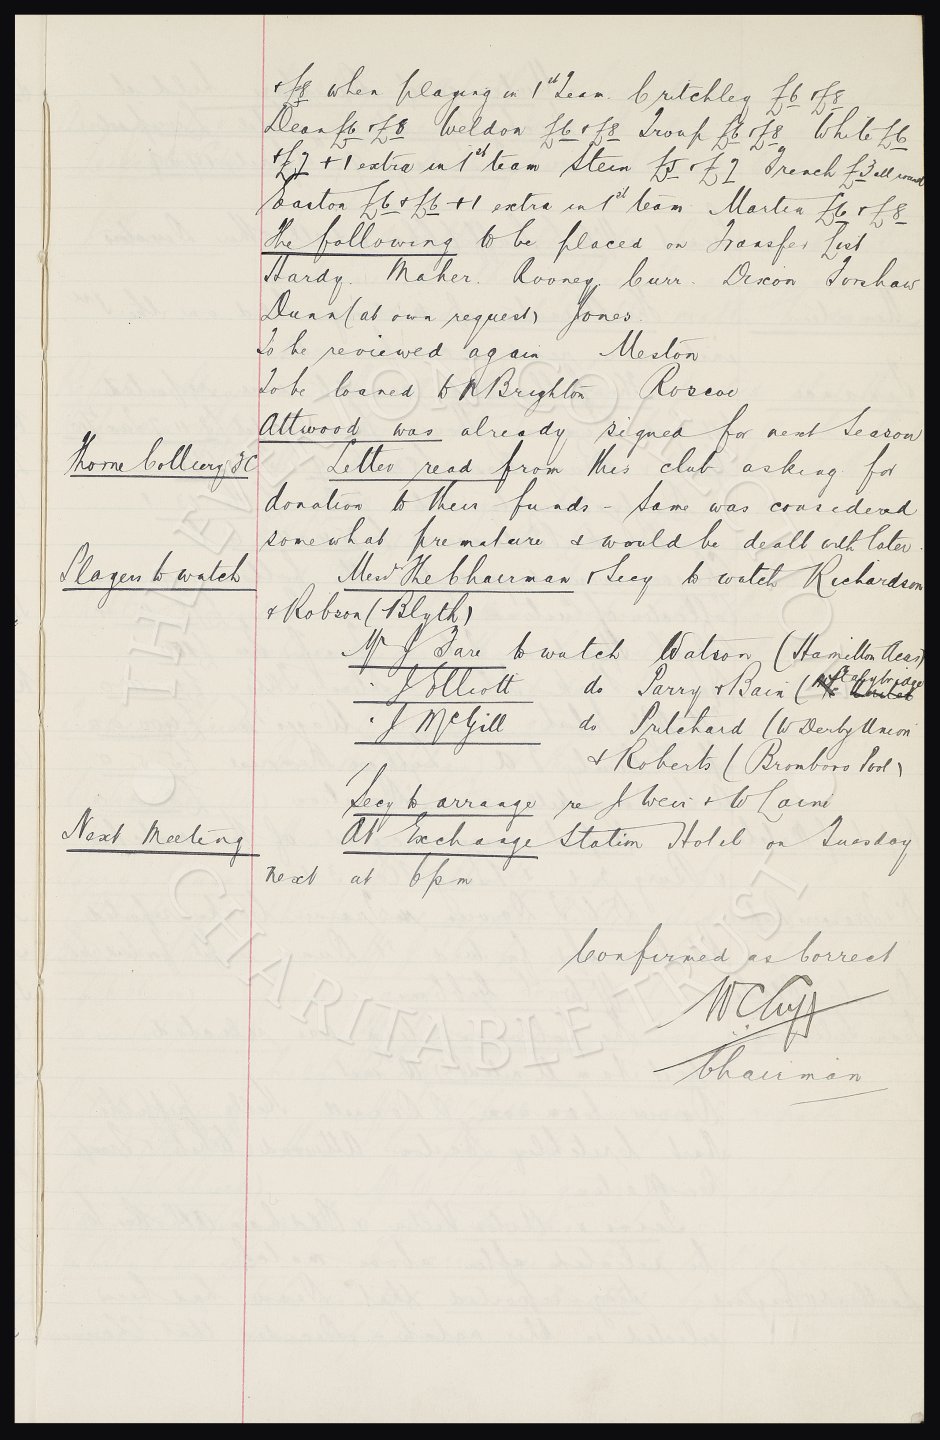 + £8 when playing in 1st Team. Critchley £6 + £8
Dean £6 + £8 Weldon £6 + £8 Troup £6 + £8 White £6
+ £7 + 1 extra in 1st team Stein £5 + £7 French £3 all round
Easton £6 + £6 + 1 extra in 1st team Martin £6 + £8
The following to be placed on Transfer List
Hardy. Maher. Rooney. Curr. Dixon Forshaw
Dunn (at own request) Jones.
To be reviewed again Meston
To be loaned to N Brighton Roscoe
Attwood was already signed for next Season
Thorne Colliery FC Letter read from this club asking for
donation to their funds - Same was considered
somewhat premature & would be dealt with later.
Players to watch Messrs The Chairman & Secy to watch Richardson
& Robson (Blyth)
Mr J Fare to watch Watson (Hamilton Acas)
" J Elliott do Parry & Bain (Stalybridge
" J McGill do Pritchard (W Derby Union
& Roberts (Bromboro Pool)
Secy to arrange re J Weir & W Laird
Next Meeting At Exchange Station Hotel on Tuesday
next at 6pm
Confirmed as Correct
WCCuff
Chairman
THE EVERTON FC
CHARITABLE TRUST